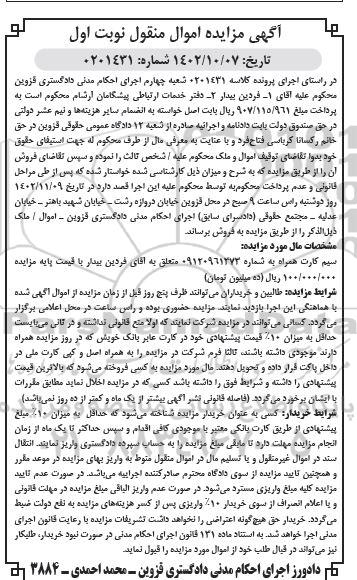 آگهی مزایده اموال منقول نوبت اول
تاریخ: ۱۴۰۲/۱۰/۰۷ شماره: ۰۲۰۱۴۳۱
در راستای اجرای پرونده کلاسه ۰۲۰۱۴۳۱ شعبه چهارم اجرای احکام مدنی دادگستری قزوین
محکوم علیه آقای ۱_ فردین بیدار ۲_ دفتر خدمات ارتباطی پیشگامان آرشام محکوم است به
پرداخت مبلغ ۹۰۷/۱۱۵/۹۶۱ ریال بابت اصل خواسته به انضمام سایر هزینه‌ها و نیم عشر دولتی
در حق صندوق دولت بابت دادنامه و اجرائیه صادره از شعبه ۱۲ دادگاه عمومی حقوقی قزوین در حق
خانم رکسانا کرباسی فتاح‌فرد و با عنایت به معرفی مال از طرف محکوم له جهت استیفای حقوق
خود بدوا تقاضای توقیف اموال و ملک محکوم علیه / شخص ثالث را نموده و سپس تقاضای فروش
آن را از طریق مزایده که به شرح و میزان ذیل کارشناسی شده خواستار شده که پس از طی مراحل
قانونی و عدم پرداخت محکوم‌به توسط محکوم علیه این اجرا قصد دارد در تاریخ ۱۴۰۲/۱۱/۰۹
روز دوشنبه راس ساعت ۹ صبح در محل قزوین خیابان دروازه رشت _ خیابان شهید باهنر _ خیابان
عدلیه _ مجتمع حقوقی (دادسرای سابق) اجرای احکام مدنی دادگستری قزوین _ اموال / ملک
ذیل‌الذکر را از طریق مزایده به فروش برساند.
مشخصات مال مورد مزایده:
سیم کارت همراه به شماره ۰۹۱۲۰۹۶۱۳۷۳ متعلق به آقای فردین بیدار با قیمت پایه مزایده
۱۰۰/۰۰۰/۰۰۰ ریال (ده میلیون تومان)
شرایط مزایده: طالبین و خریداران می‌توانند ظرف پنج روز قبل از زمان مزایده از اموال آگهی شده
با هماهنگی این اجرا بازدید نمایند. مزایده حضوری بوده و راس ساعت در محل اعلامی برگزار
می‌گردد. کسانی می‌توانند در مزایده شرکت نمایند که اولا منع قانونی نداشته و در ثانی می‌بایست
حداقل به میزان ۱۰٪ قیمت پیشنهادی خود در کارت عابر بانک خویش که در روز مزایده همراه
دارند موجودی داشته باشند، ثالثا فرم شرکت در مزایده را به همراه اصل و کپی کارت ملی در
داخل پاکت قرار داده و تحویل دهند. مال مورد مزایده به کسی فروخته می‌شود که بالاترین قیمت
پیشنهادی را داشته و شرایط فوق را داشته باشد کسی که در مزایده اخلال نماید مطابق مقررات
با ایشان برخورد می‌گردد. (فاصله قانونی نشر آگهی بیشتر از یک ماه و کمتر از ده روز نمی‌باشد)
شرایط خریدار: کسی به عنوان خریدار مزایده شناخته می‌شود که حداقل به میزان ۱۰٪ مبلغ
پیشنهادی از طریق کارت بانکی معتبر با موجودی کافی اقدام و سپس حداکثر تا یک ماه از زمان
انجام مزایده مهلت دارد تا مابقی مبلغ مزایده را به حساب سپرده دادگستری واریز نمایند. انتقال
سند در اموال غیرمنقول و یا تسلیم مال در اموال منقول منوط به واریز بهای مزایده در موعد مقرر
و همچنین تایید مزایده از سوی دادگاه محترم صادرکننده اجراییه می‌باشد. در صورت عدم تایید
مزایده کلیه مبلغ واریزی مسترد می‌شود. در صورت عدم واریز الباقی مبلغ مزایده در مهلت قانونی
و یا اعلام انصراف از سوی خریدار ۱۰٪ واریزی پس از کسر هزینه‌های مزایده به نفع دولت ضبط
می‌گردد. خریدار حق هیچ‌گونه اعتراضی را نخواهد داشت تشریفات مزایده با رعایت قانون اجرای
مدنی اجرا خواهد شد. به استناد ماده ۱۳۱ قانون اجرای احکام مدنی در صورت نبود خریدار، طلبکار
نیز می‌تواند در قبال طلب خود از اموال مورد مزایده را قبول نماید.
دادورز اجرای احکام مدنی دادگستری قزوین _ محمد احمدی _ ۳۸۸۴